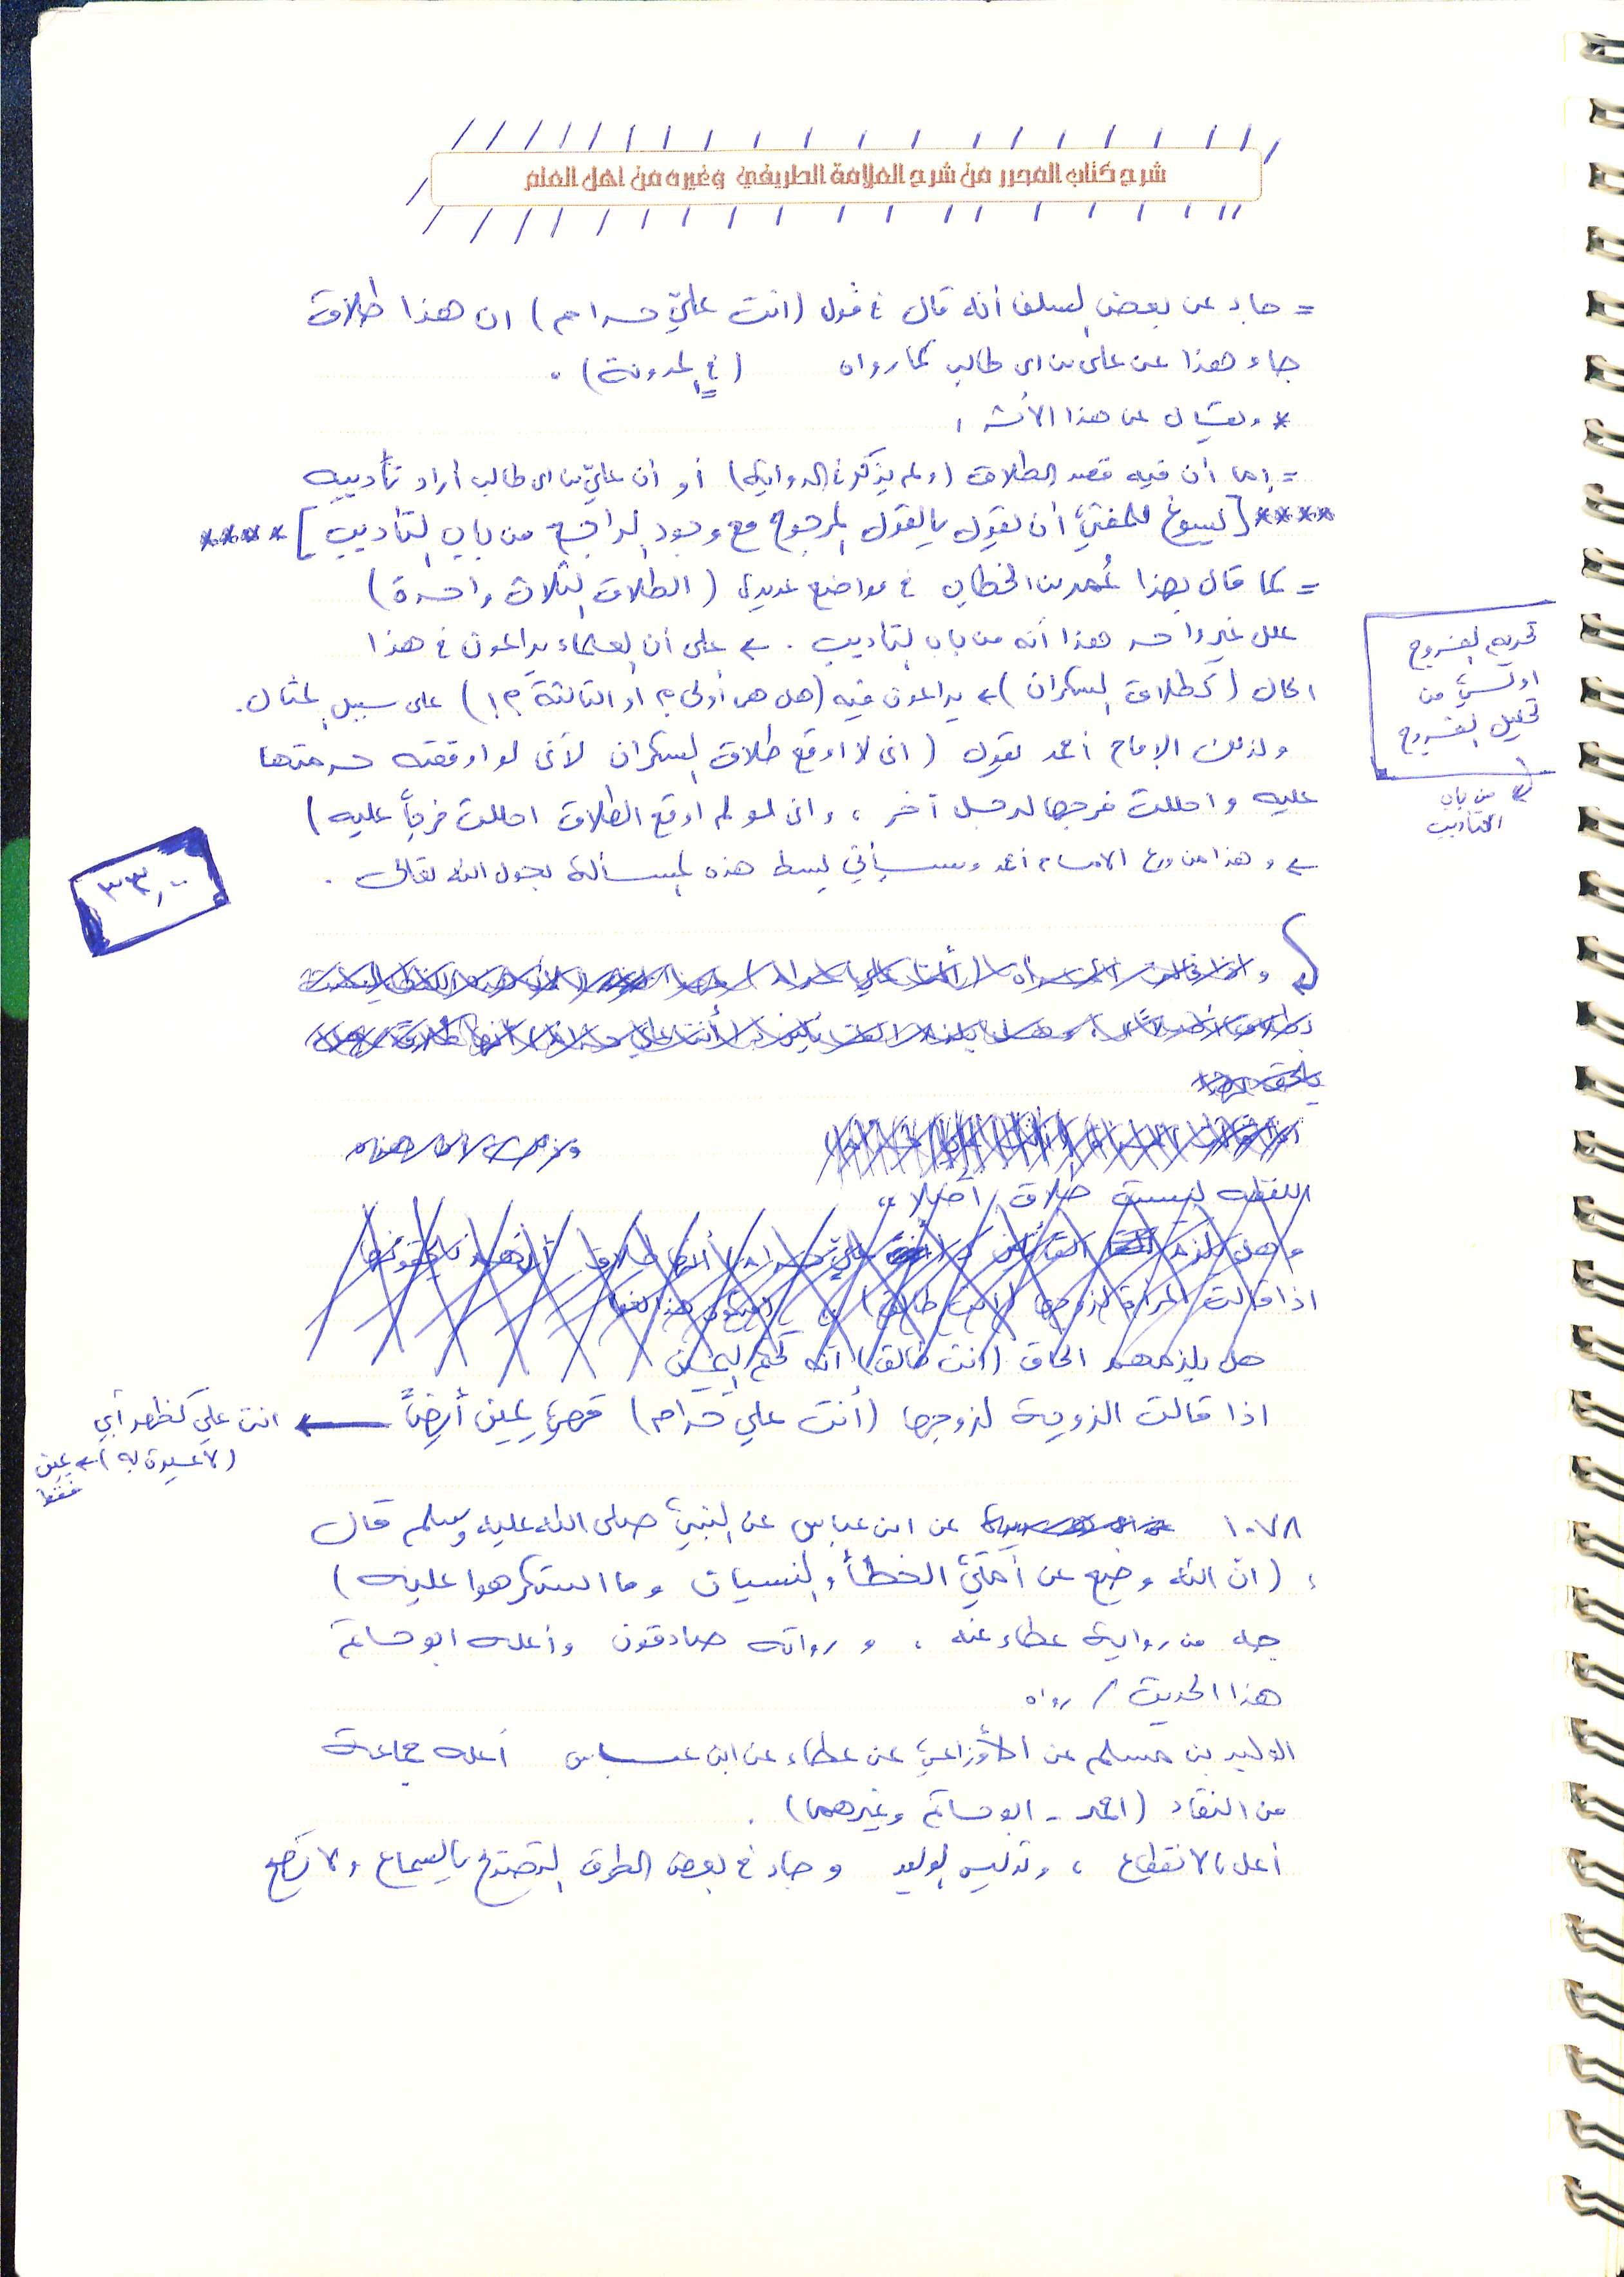 شرح كتاب المحرر من شرح العلامة الطريفي وغيره من اهل العلم
= جاء عن بعض السلف أنه قال في قول (انت عليّ حرام) ان هذا طلاق
جاء هذا عن علي بن ابي طالب كما رواه (في المدونة) .
* ويقال عن هذا الأثر :
= إما أن فيه قصد الطلاق (ولم يذكر في الرواية) أو أن عليّ بن ابي طالب أراد تأديبه
**** [يسوغ للمفتي أن يقول بالقول المرجوح مع وجود الراجح من باب التأديب] ****
= كما قال بهذا عُمر بن الخطاب في مواضع عديدة (الطلاق الثلاث واحدة)
علل غير واحد هذا أنه من باب التأديب . ← على أن العلماء يراعون في هذا
الحال (كطلاق السكران) ← يراعون فيه (هل هي أولى ؟ أو الثالثة ؟!) على سبيل المثال .
ولذلك الإمام أحمد يقول (اني لا اوقع طلاق السكران لأني لو اوقعته حرمتها
عليه واحللت فرجها لرجل آخر ، واني لو لم اوقع الطلاق احللت فرجاً عليه)
← وهذا من ورع الامام أحمد وسيأتي بسط هذه المسألة بحول الله تعالى .
تحريم الفروج
اولى من
تحليل الفروج
من باب
التأديب
٣٣,٠٠
اللفظه ليست طلاق أصلا
اذا قالت المرأة لزوجها (انت طالق)
هل يلزمهم الحاق (انت طالق) انه كحكم اليمين
اذا قالت الزوجة لزوجها (أنت علي حرام) فهي يمين أيضاً ←
انت علي كظهر أبي
(لا عبرة به) ← يمين
فقط
١٠٧٨ عن ابن عباس عن النبي صلى الله عليه وسلم قال
: (ان الله وضع عن أمتي الخطأ والنسيان وما استكرهوا عليه)
جه من رواية عطاء عنه ، ورواته صادقون وأعله ابو حاتم
هذا الحديث / رواه
الوليد بن مسلم عن الأوزاعي عن عطاء عن ابن عباس أعله جماعة
من النقاد (احمد - ابو حاتم وغيرهما) .
أعل بالانقطاع ، وتدليس الوليد وجاء في بعض الطرق التصريح بالسماع ولا يصح